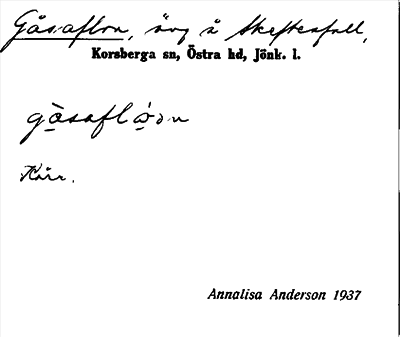 Gåsaflon, äng å Skeftesfall,
Korsberga sn, Östra hd, Jönk. l.
Kärr.
Annalisa Anderson 1937